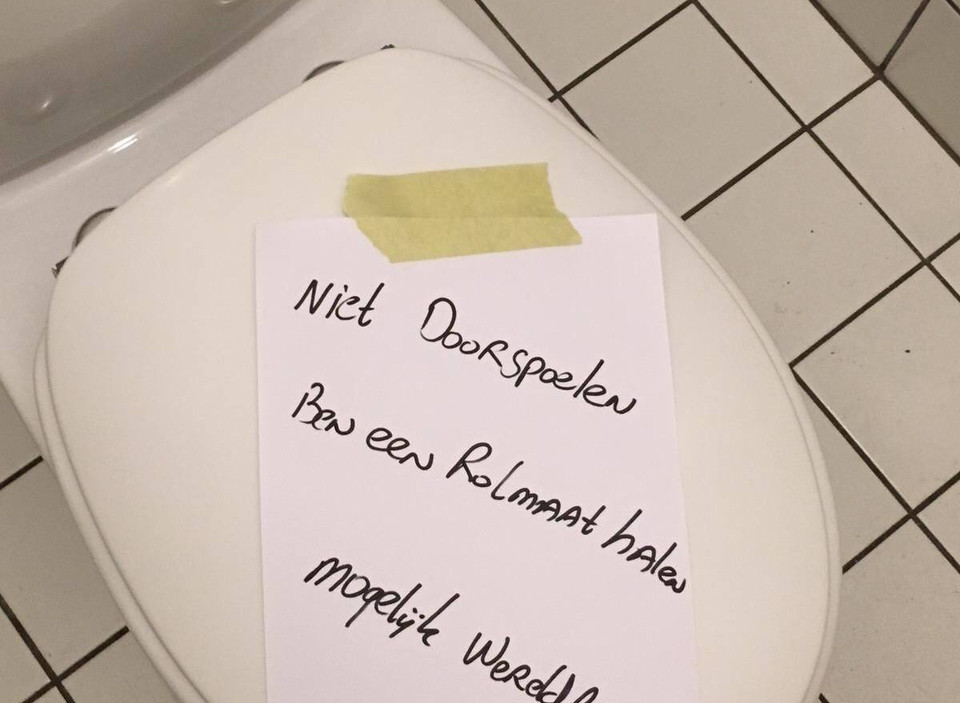 Niet Doorspoelen
Ben een Rolmaat halen
mogelijk